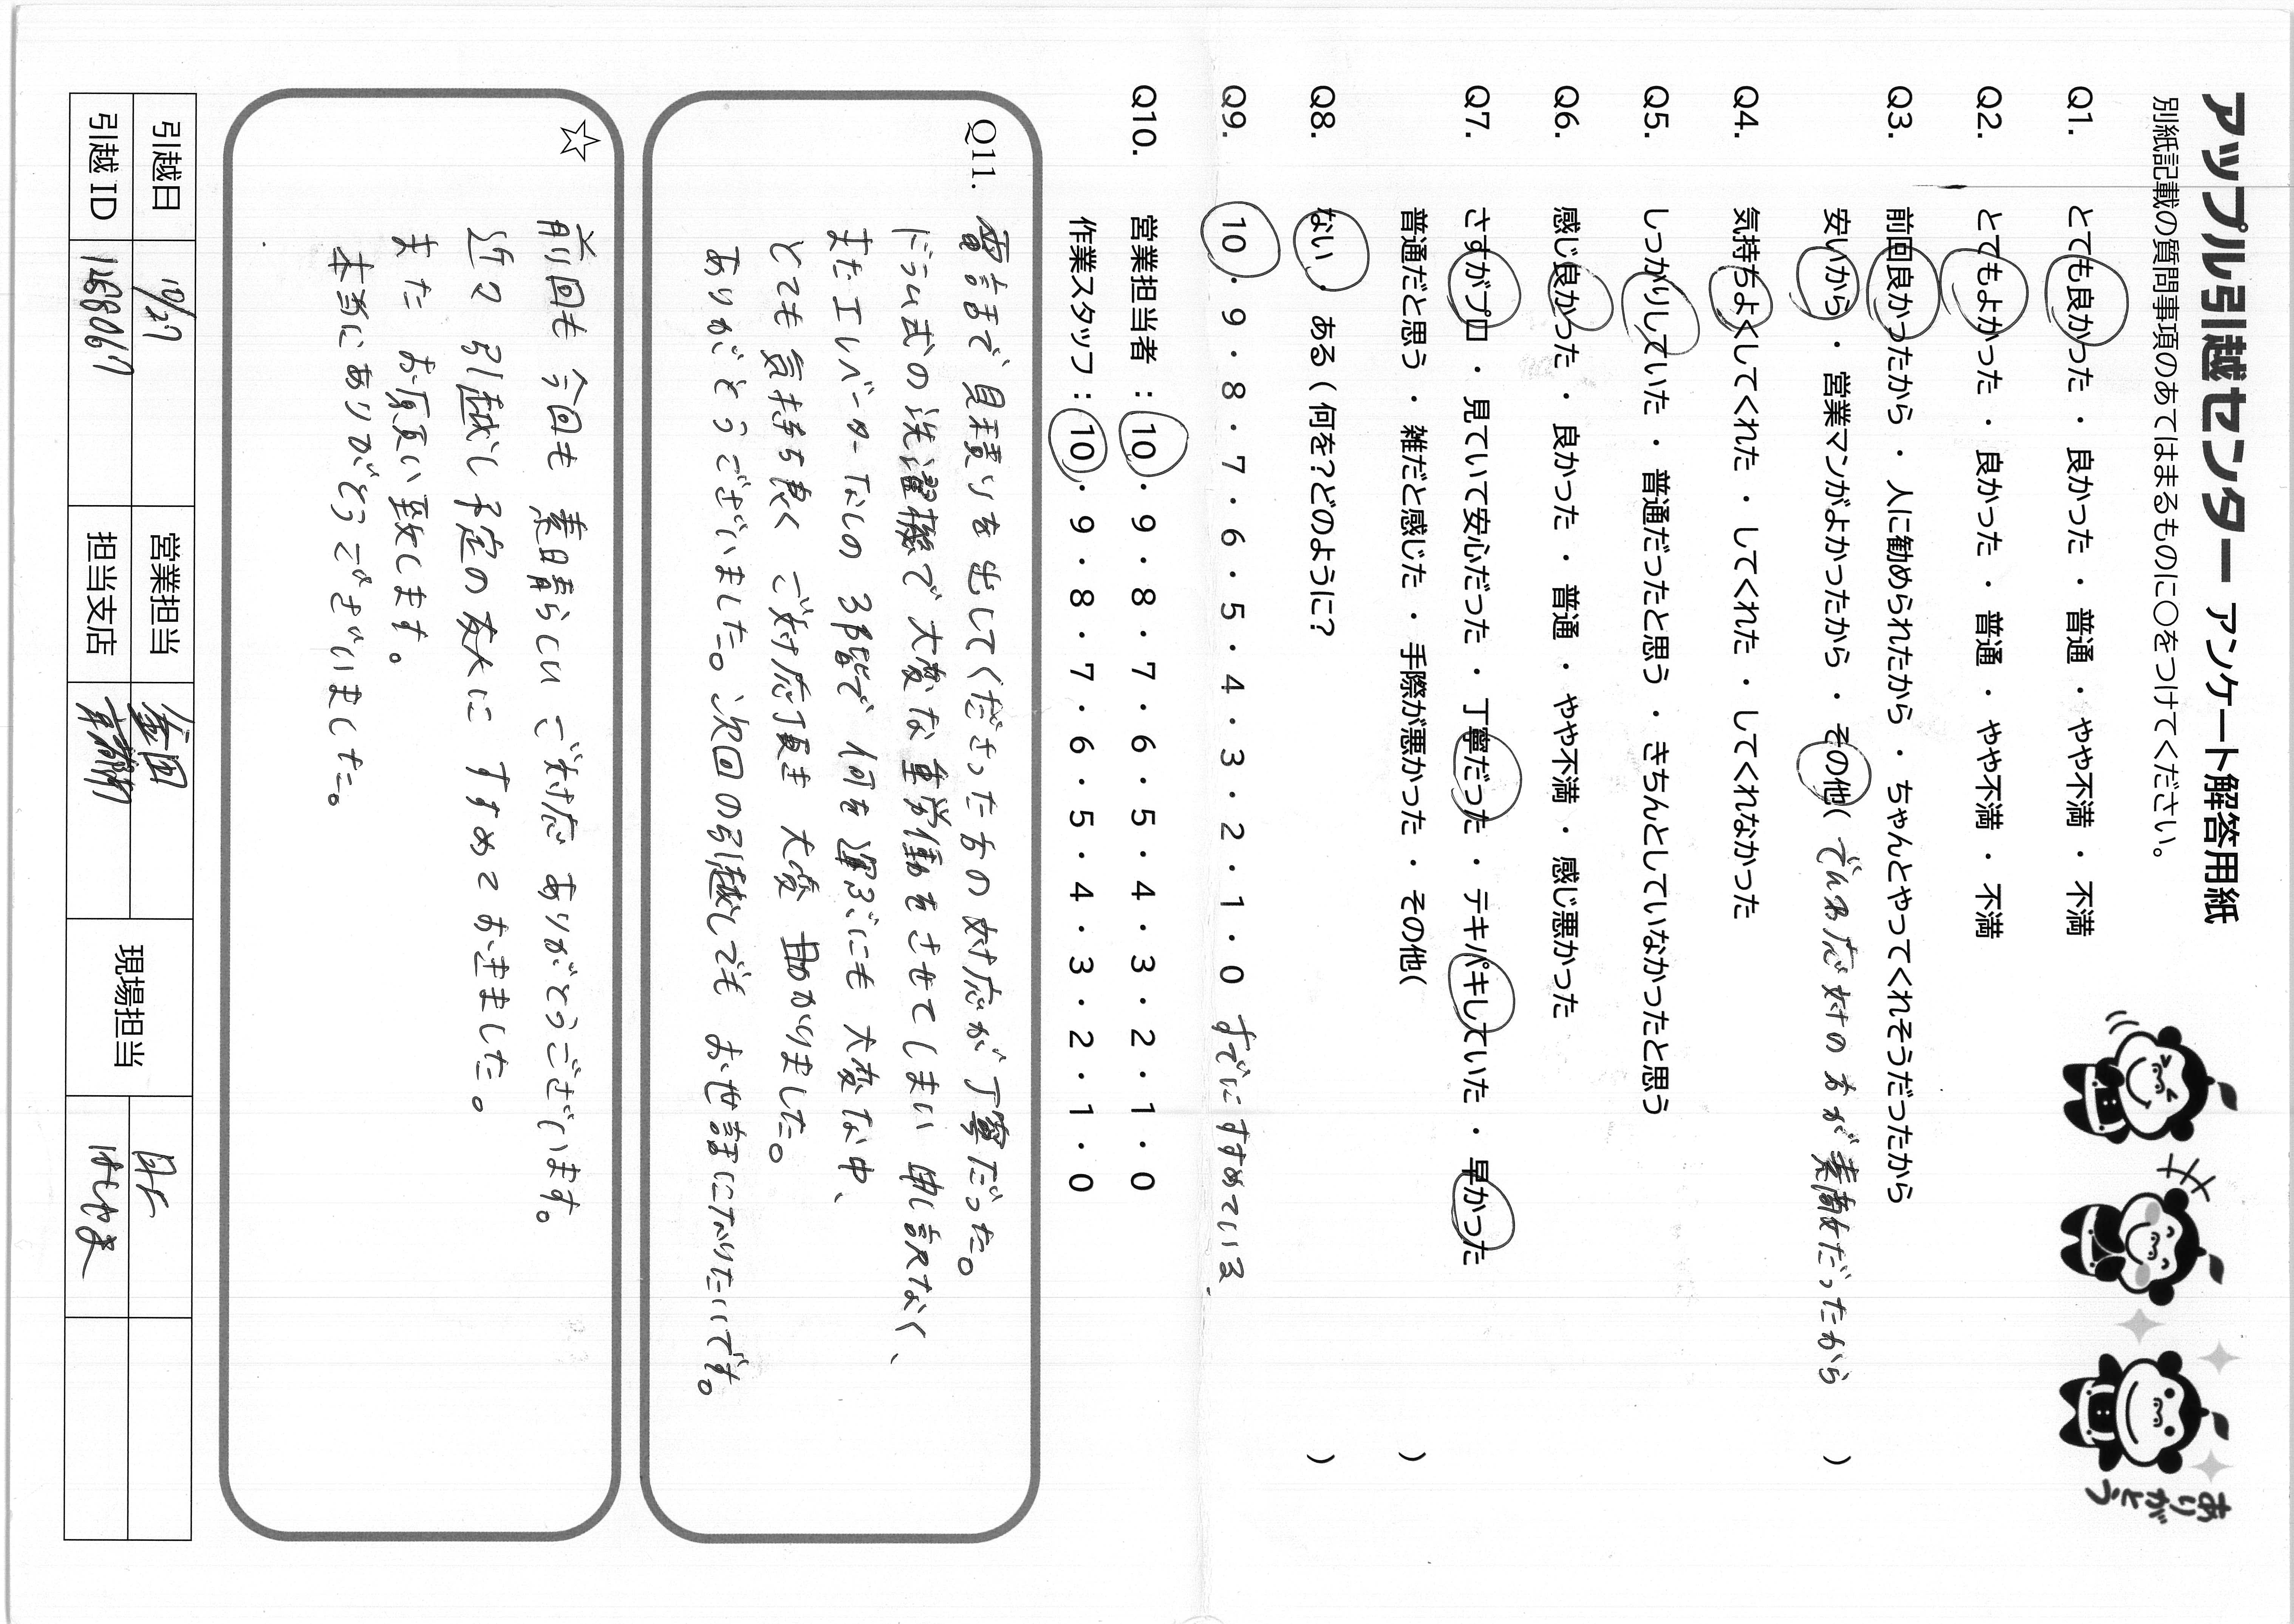 アップル引越センター アンケート解答用紙
別紙記載の質問事項のあてはまるものに○をつけてください。
ありがとう
Q1. とても良かった ・ 良かった ・ 普通 ・ やや不満 ・ 不満
Q2. とてもよかった ・ 良かった ・ 普通 ・ やや不満 ・ 不満
Q3. 前回良かったから ・ 人に勧められたから ・ ちゃんとやってくれそうだったから
安いから ・ 営業マンがよかったから ・ その他( でんわ応対の方が素敵だったから )
Q4. 気持ちよくしてくれた ・ してくれた ・ してくれなかった
Q5. しっかりしていた ・ 普通だったと思う ・ きちんとしていなかったと思う
Q6. 感じ良かった ・ 良かった ・ 普通 ・ やや不満 ・ 感じ悪かった
Q7. さすがプロ ・ 見ていて安心だった ・ 丁寧だった ・ テキパキしていた ・ 早かった
普通だと思う ・ 雑だと感じた ・ 手際が悪かった ・ その他( )
Q8. ない ・ ある ( 何を?どのように? )
Q9. 10 ・ 9 ・ 8 ・ 7 ・ 6 ・ 5 ・ 4 ・ 3 ・ 2 ・ 1 ・ 0 すでにすすめている、
Q10. 営業担当者 : 10 ・ 9 ・ 8 ・ 7 ・ 6 ・ 5 ・ 4 ・ 3 ・ 2 ・ 1 ・ 0
作業スタッフ : 10 ・ 9 ・ 8 ・ 7 ・ 6 ・ 5 ・ 4 ・ 3 ・ 2 ・ 1 ・ 0
Q11. 電話で見積りを出してくださった方の対応が丁寧だった。
ドラム式の洗濯機で大変な重労働をさせてしまい 申し訳なく、
またエレベーターなしの3階で 何を運ぶにも大変な中、
とても気持ち良く ご対応頂き 大変 助かりました。
ありがとうございました。次回の引越しでも お世話になりたいです。
☆ 前回も 今回も 素晴らしい ご対応 ありがとうございます。
近々 引越し予定の友人に すすめておきました。
また お願い致します。
本当にありがとうございました。
引越日 10/27 営業担当 金田 現場担当
引越 ID 担当支店